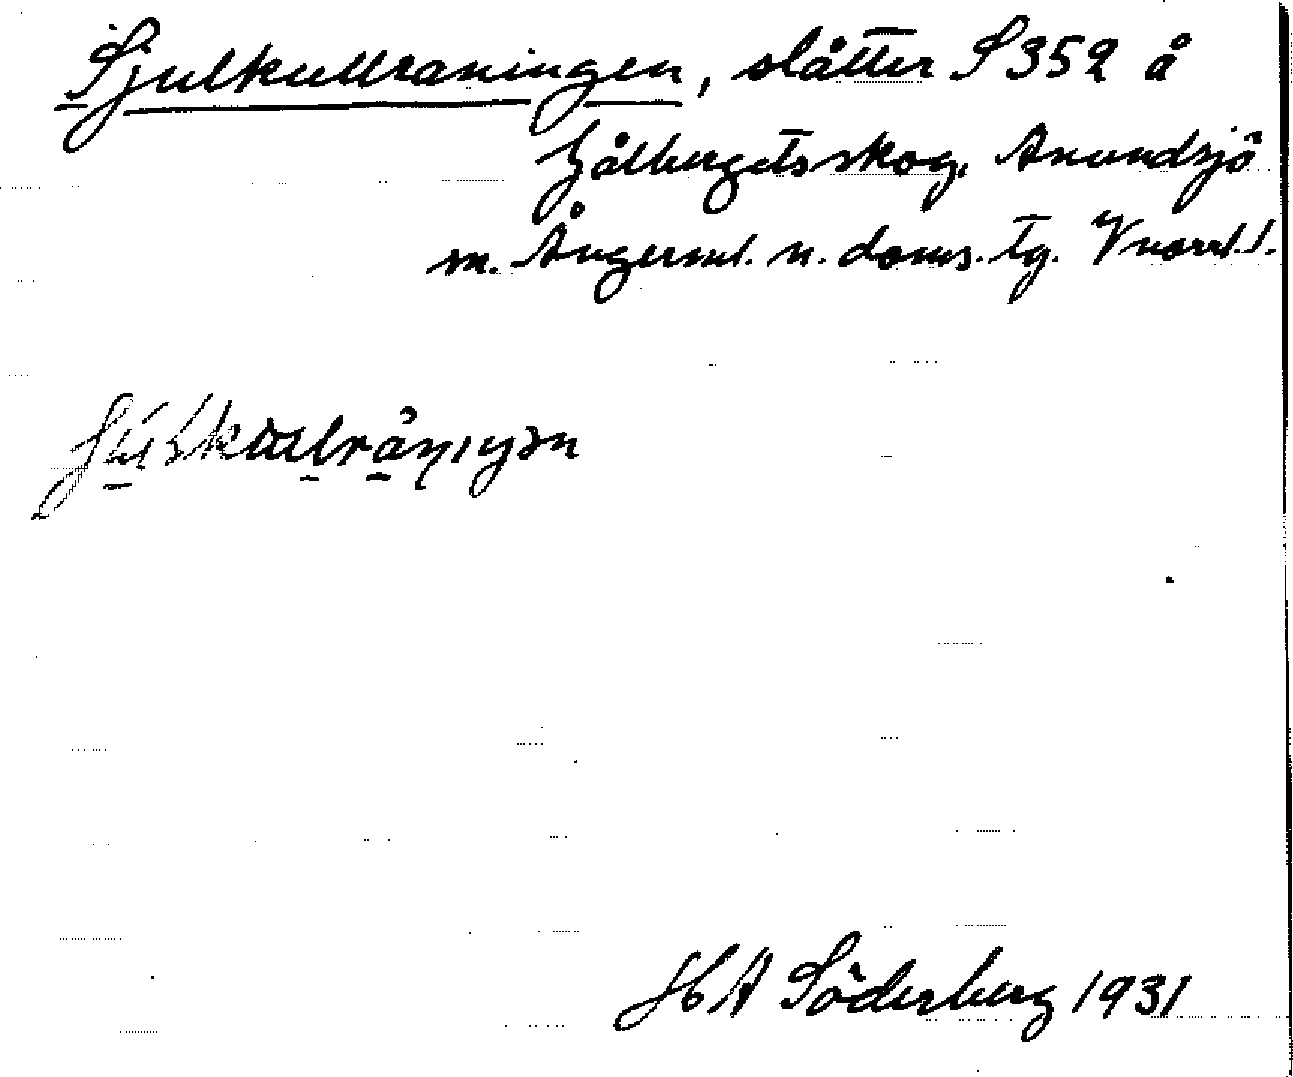 Sjulkullraningen, slåtter S 352 å
Gålbergets skog, Anundsjö
m. Ångerml. n. doms. tg. Vnorrl. l.
H A Söderberg 1931